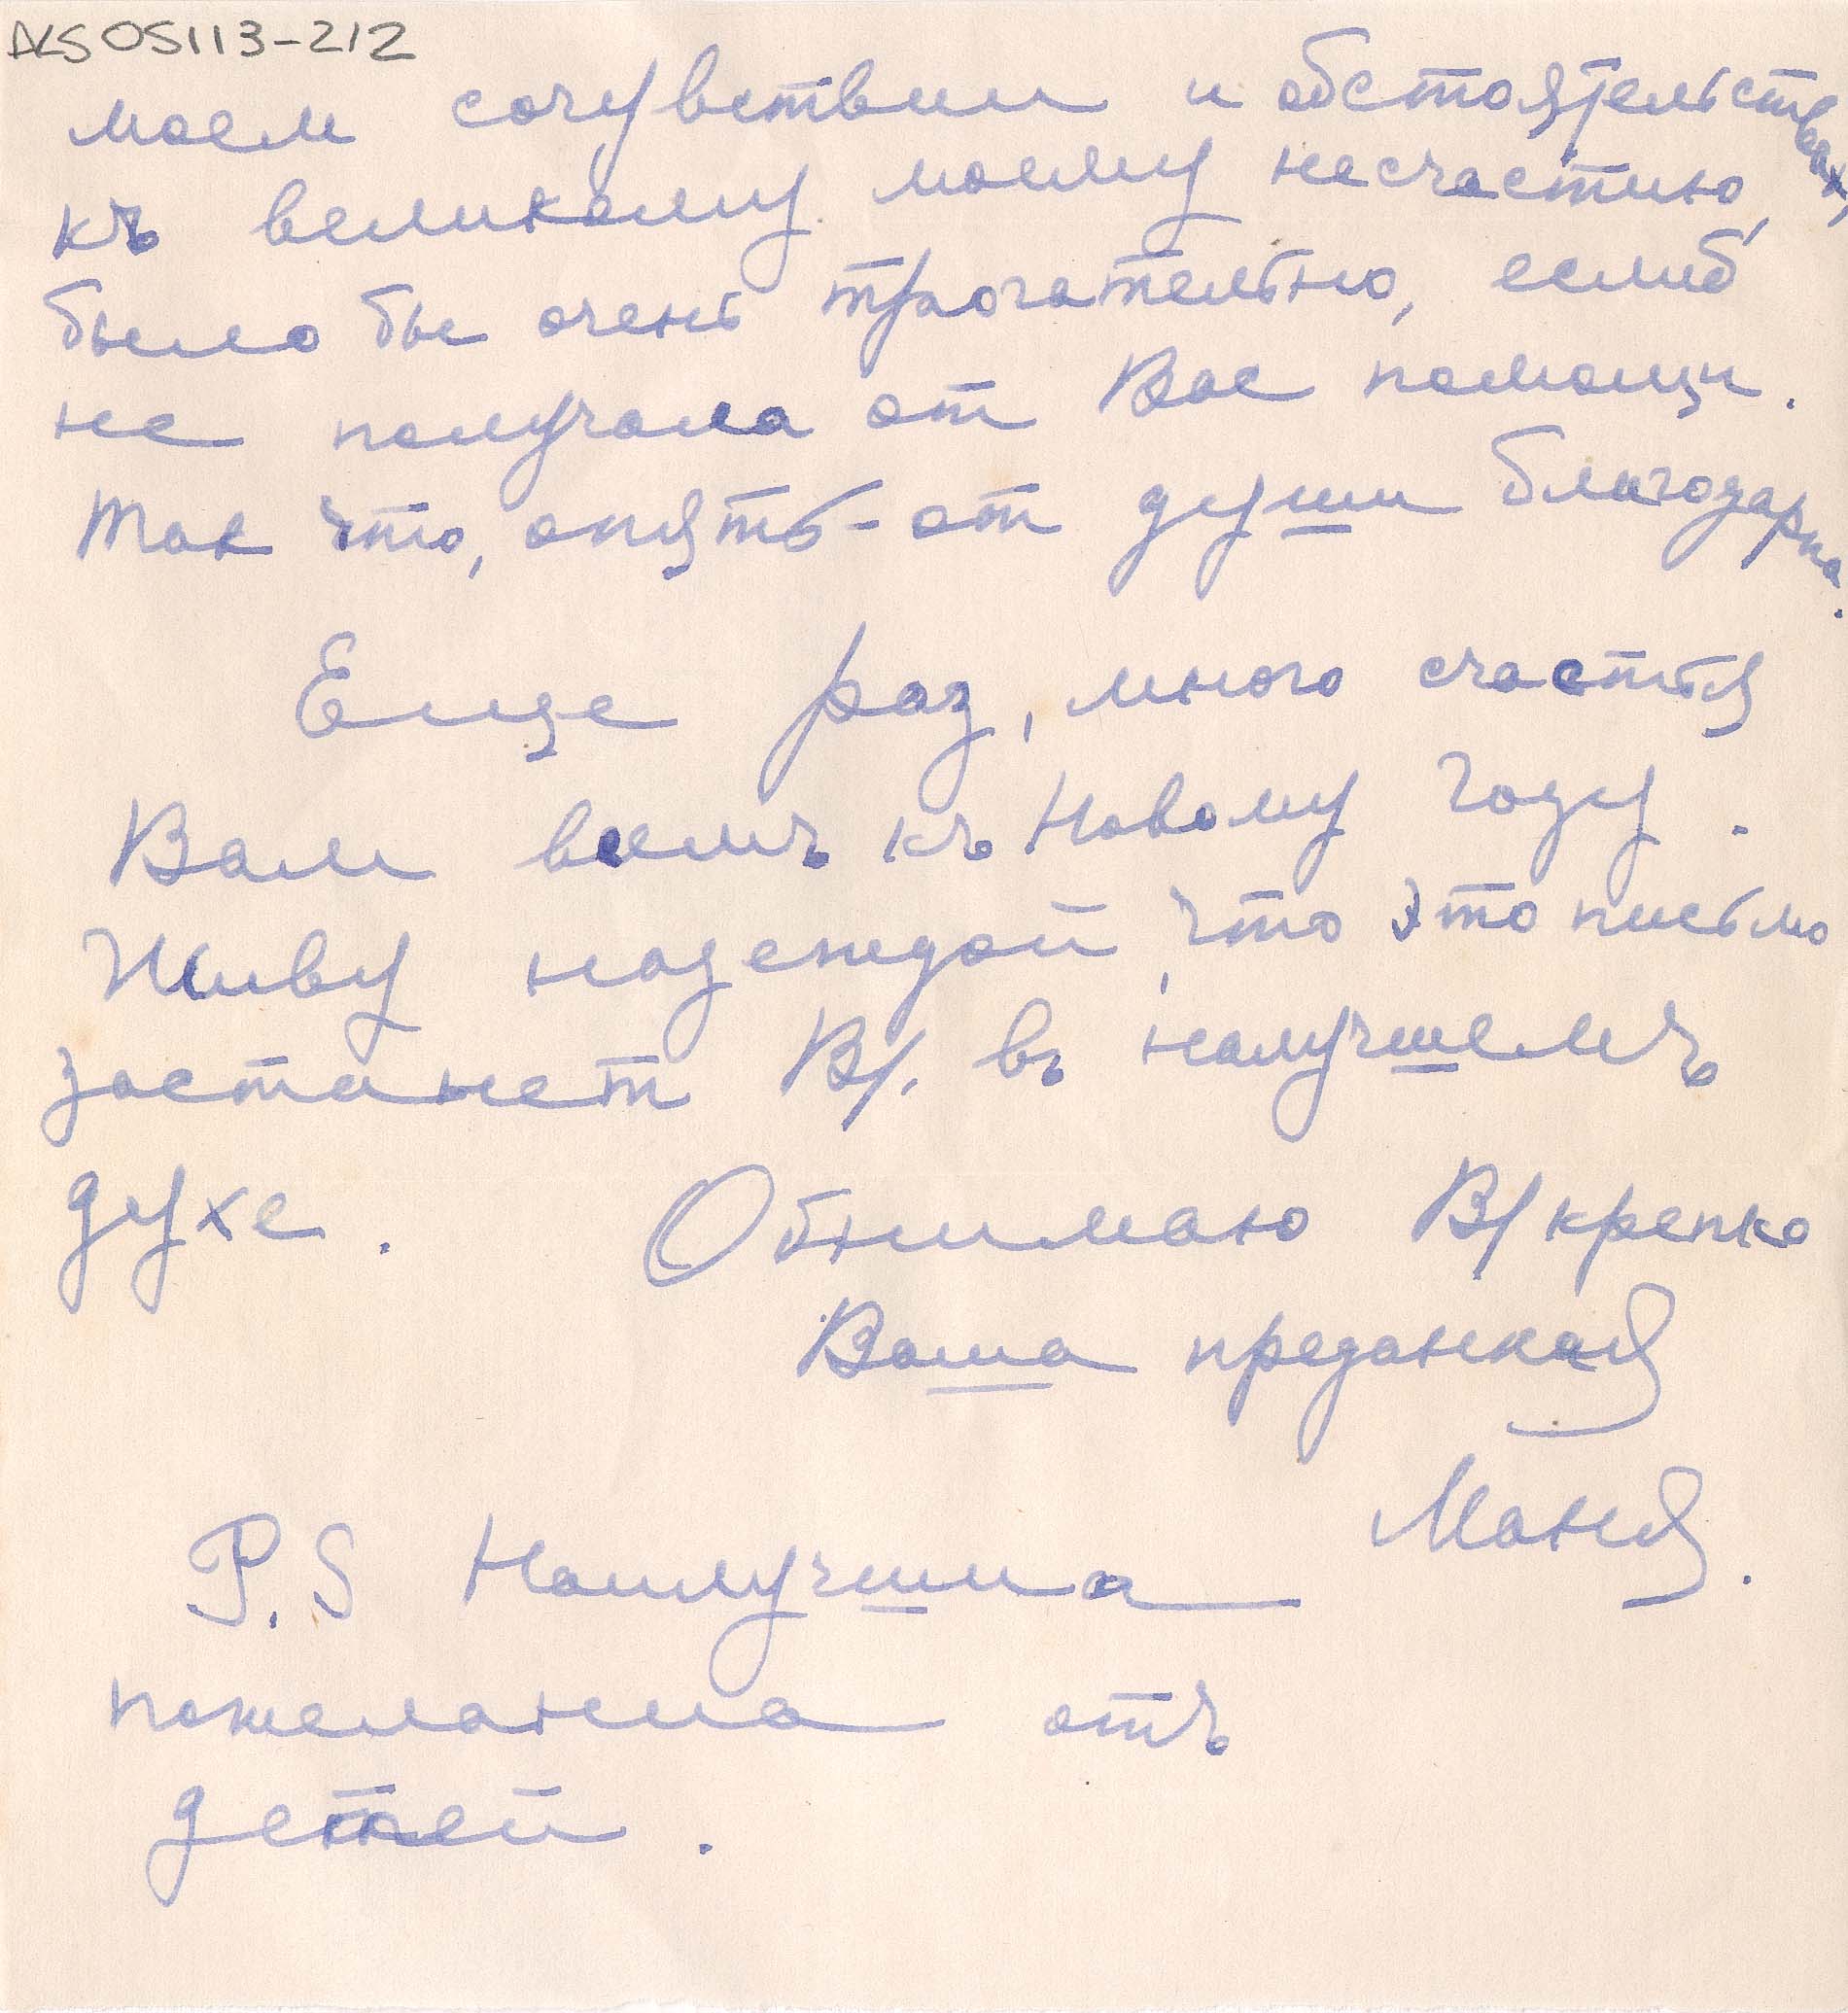 ALS 05113-212
моем сочувствии и обстоятельствах,
къ великому моему несчастию,
было бы очень трогательно, еслиб
не получала от Вас помощи.
Так что, опять-от души благодарна.
Еще раз, много счастья
Вам всемъ къ Новому Году.
Живу надеждой, что это письмо
застанет В/. въ налучшемъ
духе. Обнимаю В/ крепко
Ваша преданная
Маня.
P.S Наилучшиа
пожеланиа отъ
детей.